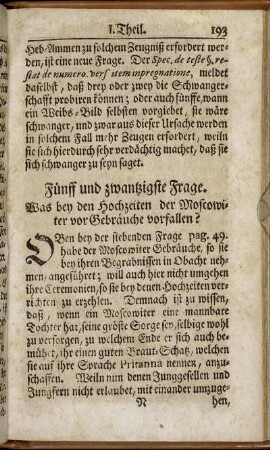 I. Theil. 193
Heb-Ammen zu solchem Zeugniß erfordert wer-
den, ist eine neue Frage. Der Spec. de teste §. re-
stat de numero. vers item inpregnatione, meldet
daselbst, daß drey oder zwey die Schwanger-
schafft probiren können; oder auch fünffe, wann
ein Weibs-Bild selbsten vorgiebet, sie wäre
schwanger, und zwar aus dieser Ursache werden
in solchem Fall mehr Zeugen erfordert, weiln
sie sich hierdurch sehr verdächtig machet, daß sie
sich schwanger zu seyn saget.
Fünff und zwantzigste Frage.
Was bey den Hochzeiten der Moscowi-
ter vor Gebräuche vorfallen?
OBen bey der siebenden Frage pag. 49.
habe der Moscowiter Gebräuche, so sie
bey ihren Begräbnissen in Obacht neh-
men, angeführet; will auch hier nicht umgehen
ihre Ceremonien, so sie bey denen Hochzeiten ver-
richten zu erzehlen. Demnach ist zu wissen,
daß, wenn ein Moscowiter eine mannbare
Tochter hat, seine gröste Sorge sey, selbige wohl
zu versorgen, zu welchem Ende er sich auch be-
mühet, ihr einen guten Braut-Schatz, welchen
sie auf ihre Sprache Pritanna nennen, anzu-
schaffen. Weiln nun denen Junggesellen und
Jungfern nicht erlaubet, mit einander umzuge-
N hen,